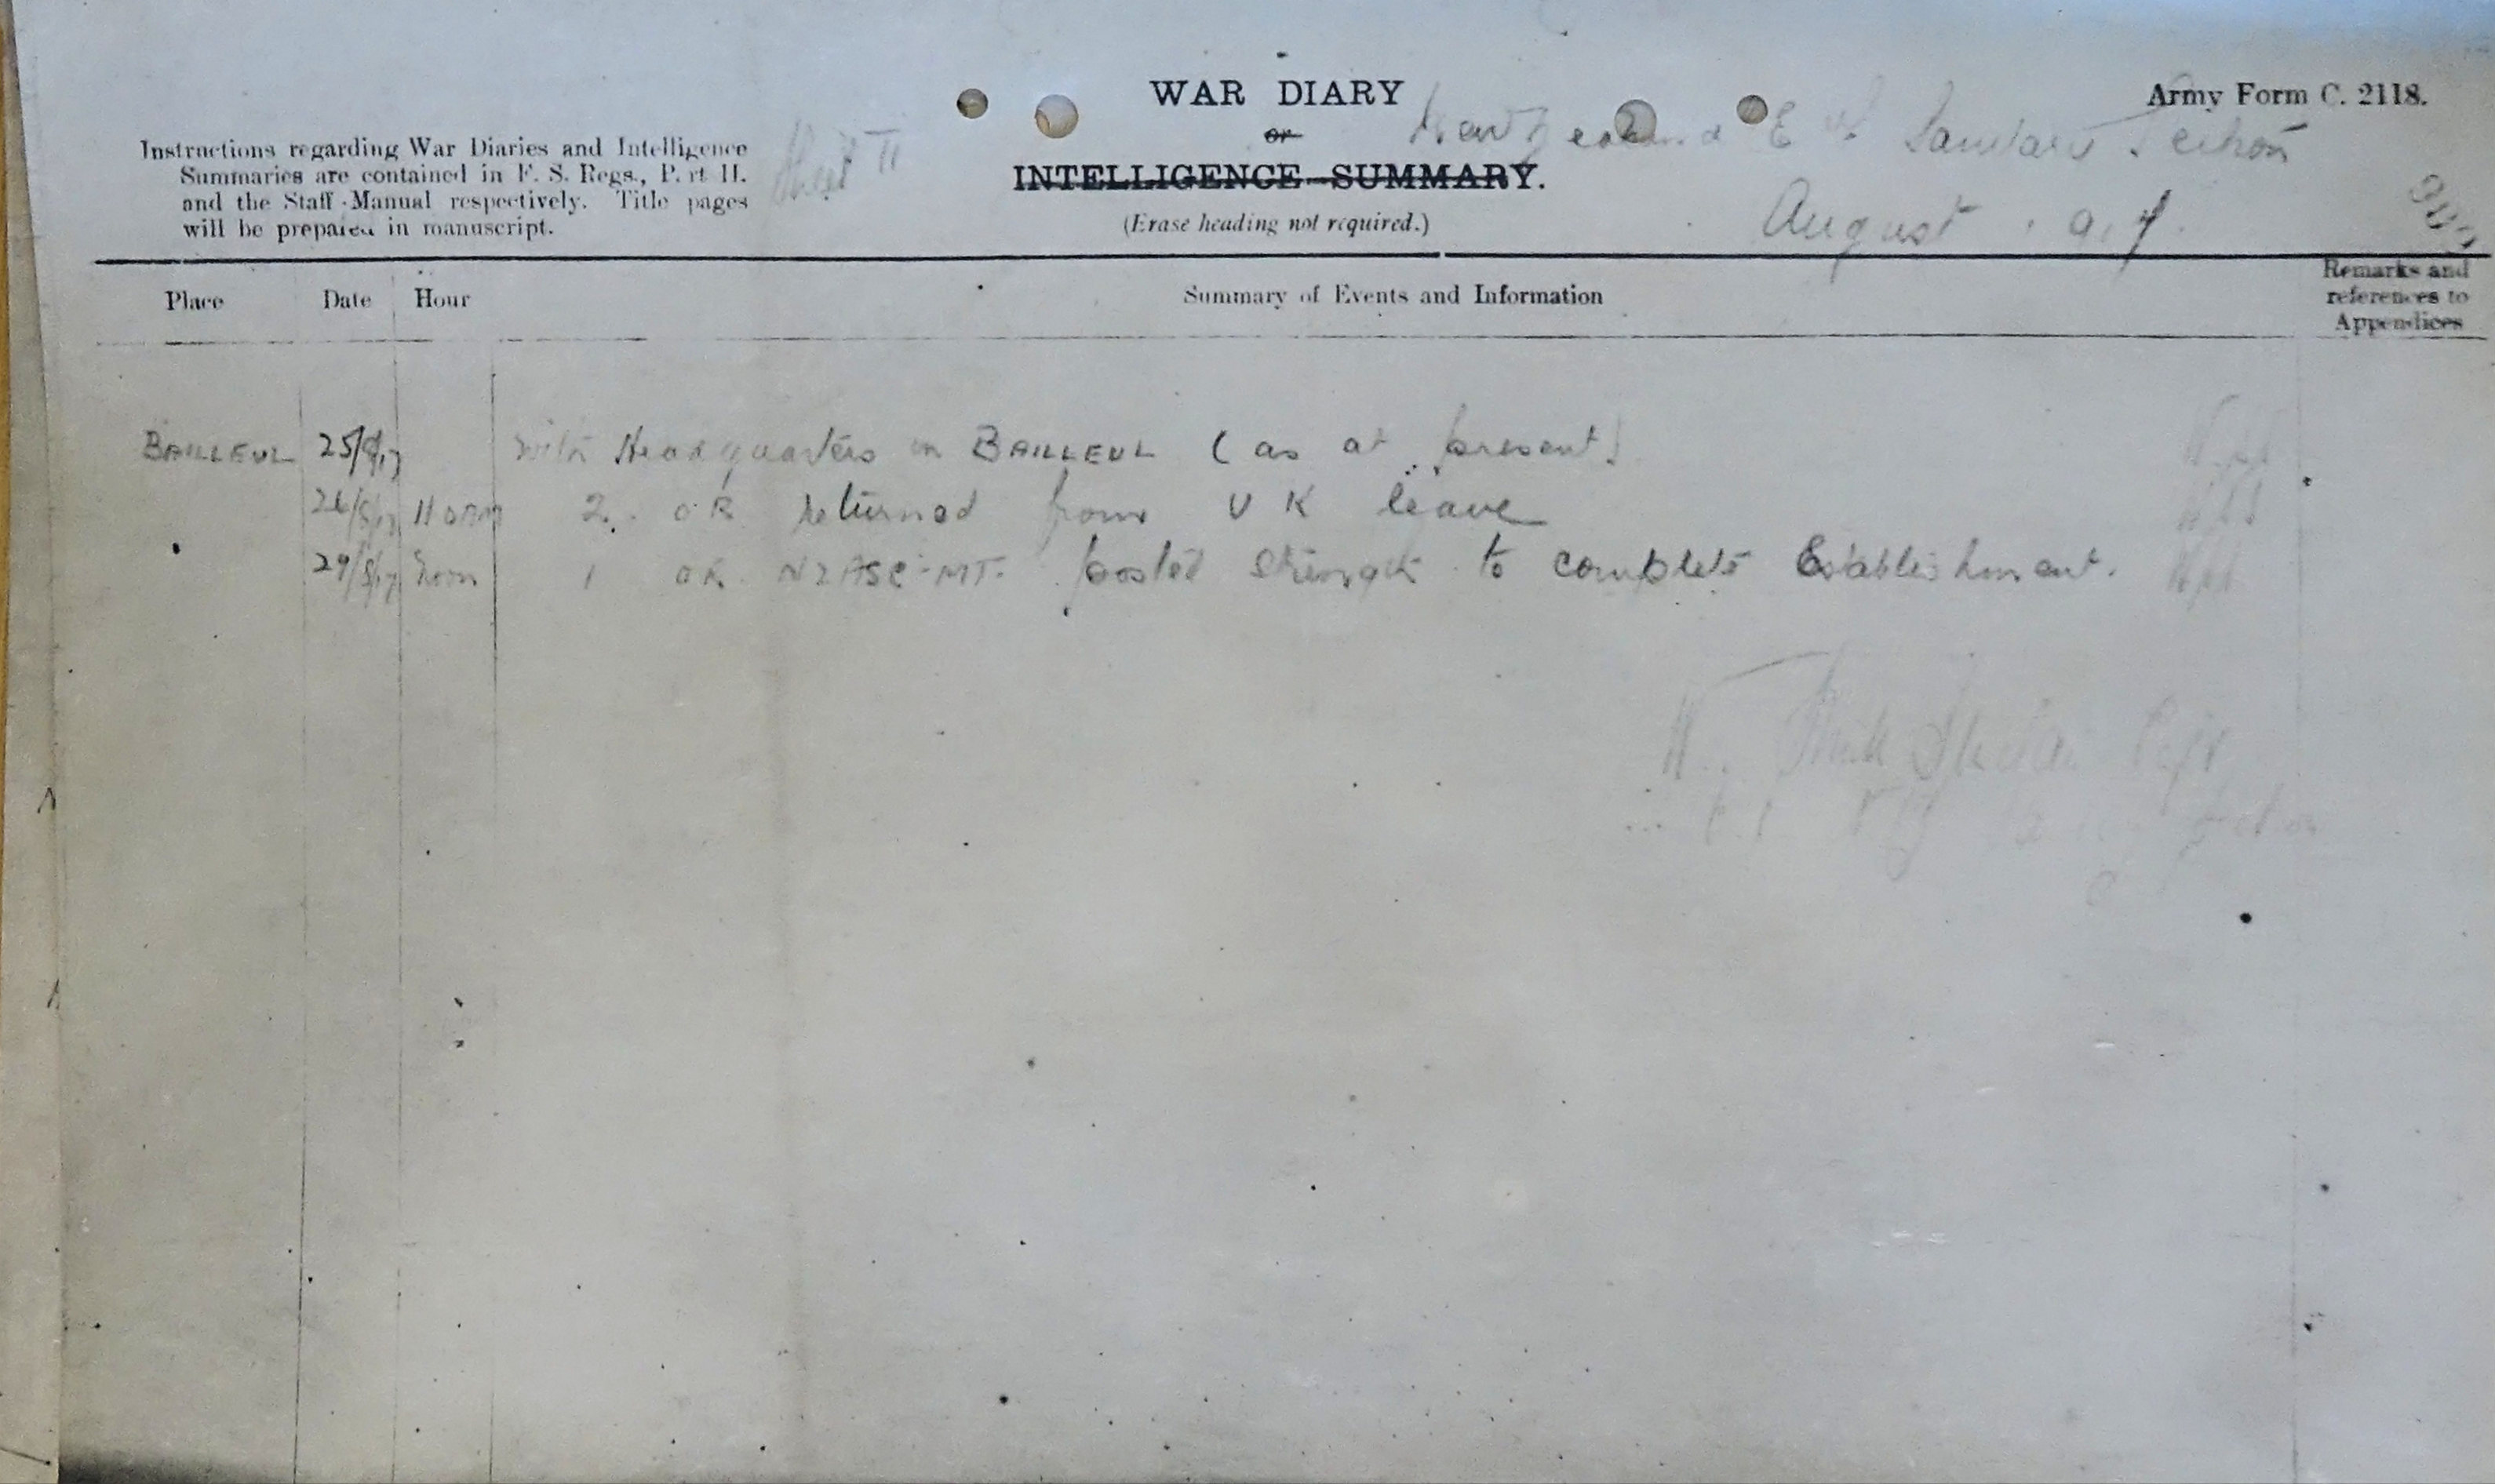 WAR DIARY
or
INTELLIGENCE SUMMARY.
(Erase heading not required.)
Army Form C. 2118.
Instructions regarding War Diaries and Intelligence
Summaries are contained in F. S. Regs., Part II.
and the Staff Manual respectively. Title pages
will be prepared in manuscript.
Sheet II
New Zealand Sanitary Section
August
Place Date Hour Summary of Events and Information Remarks and
references to
Appendices
BAILLEUL 25/8/17 with Headquarters in BAILLEUL (as at present)
26/8/17 2 OR returned from UK leave
29/8/17 1 OR NZASC-MT. posted strength to complete Establishment.